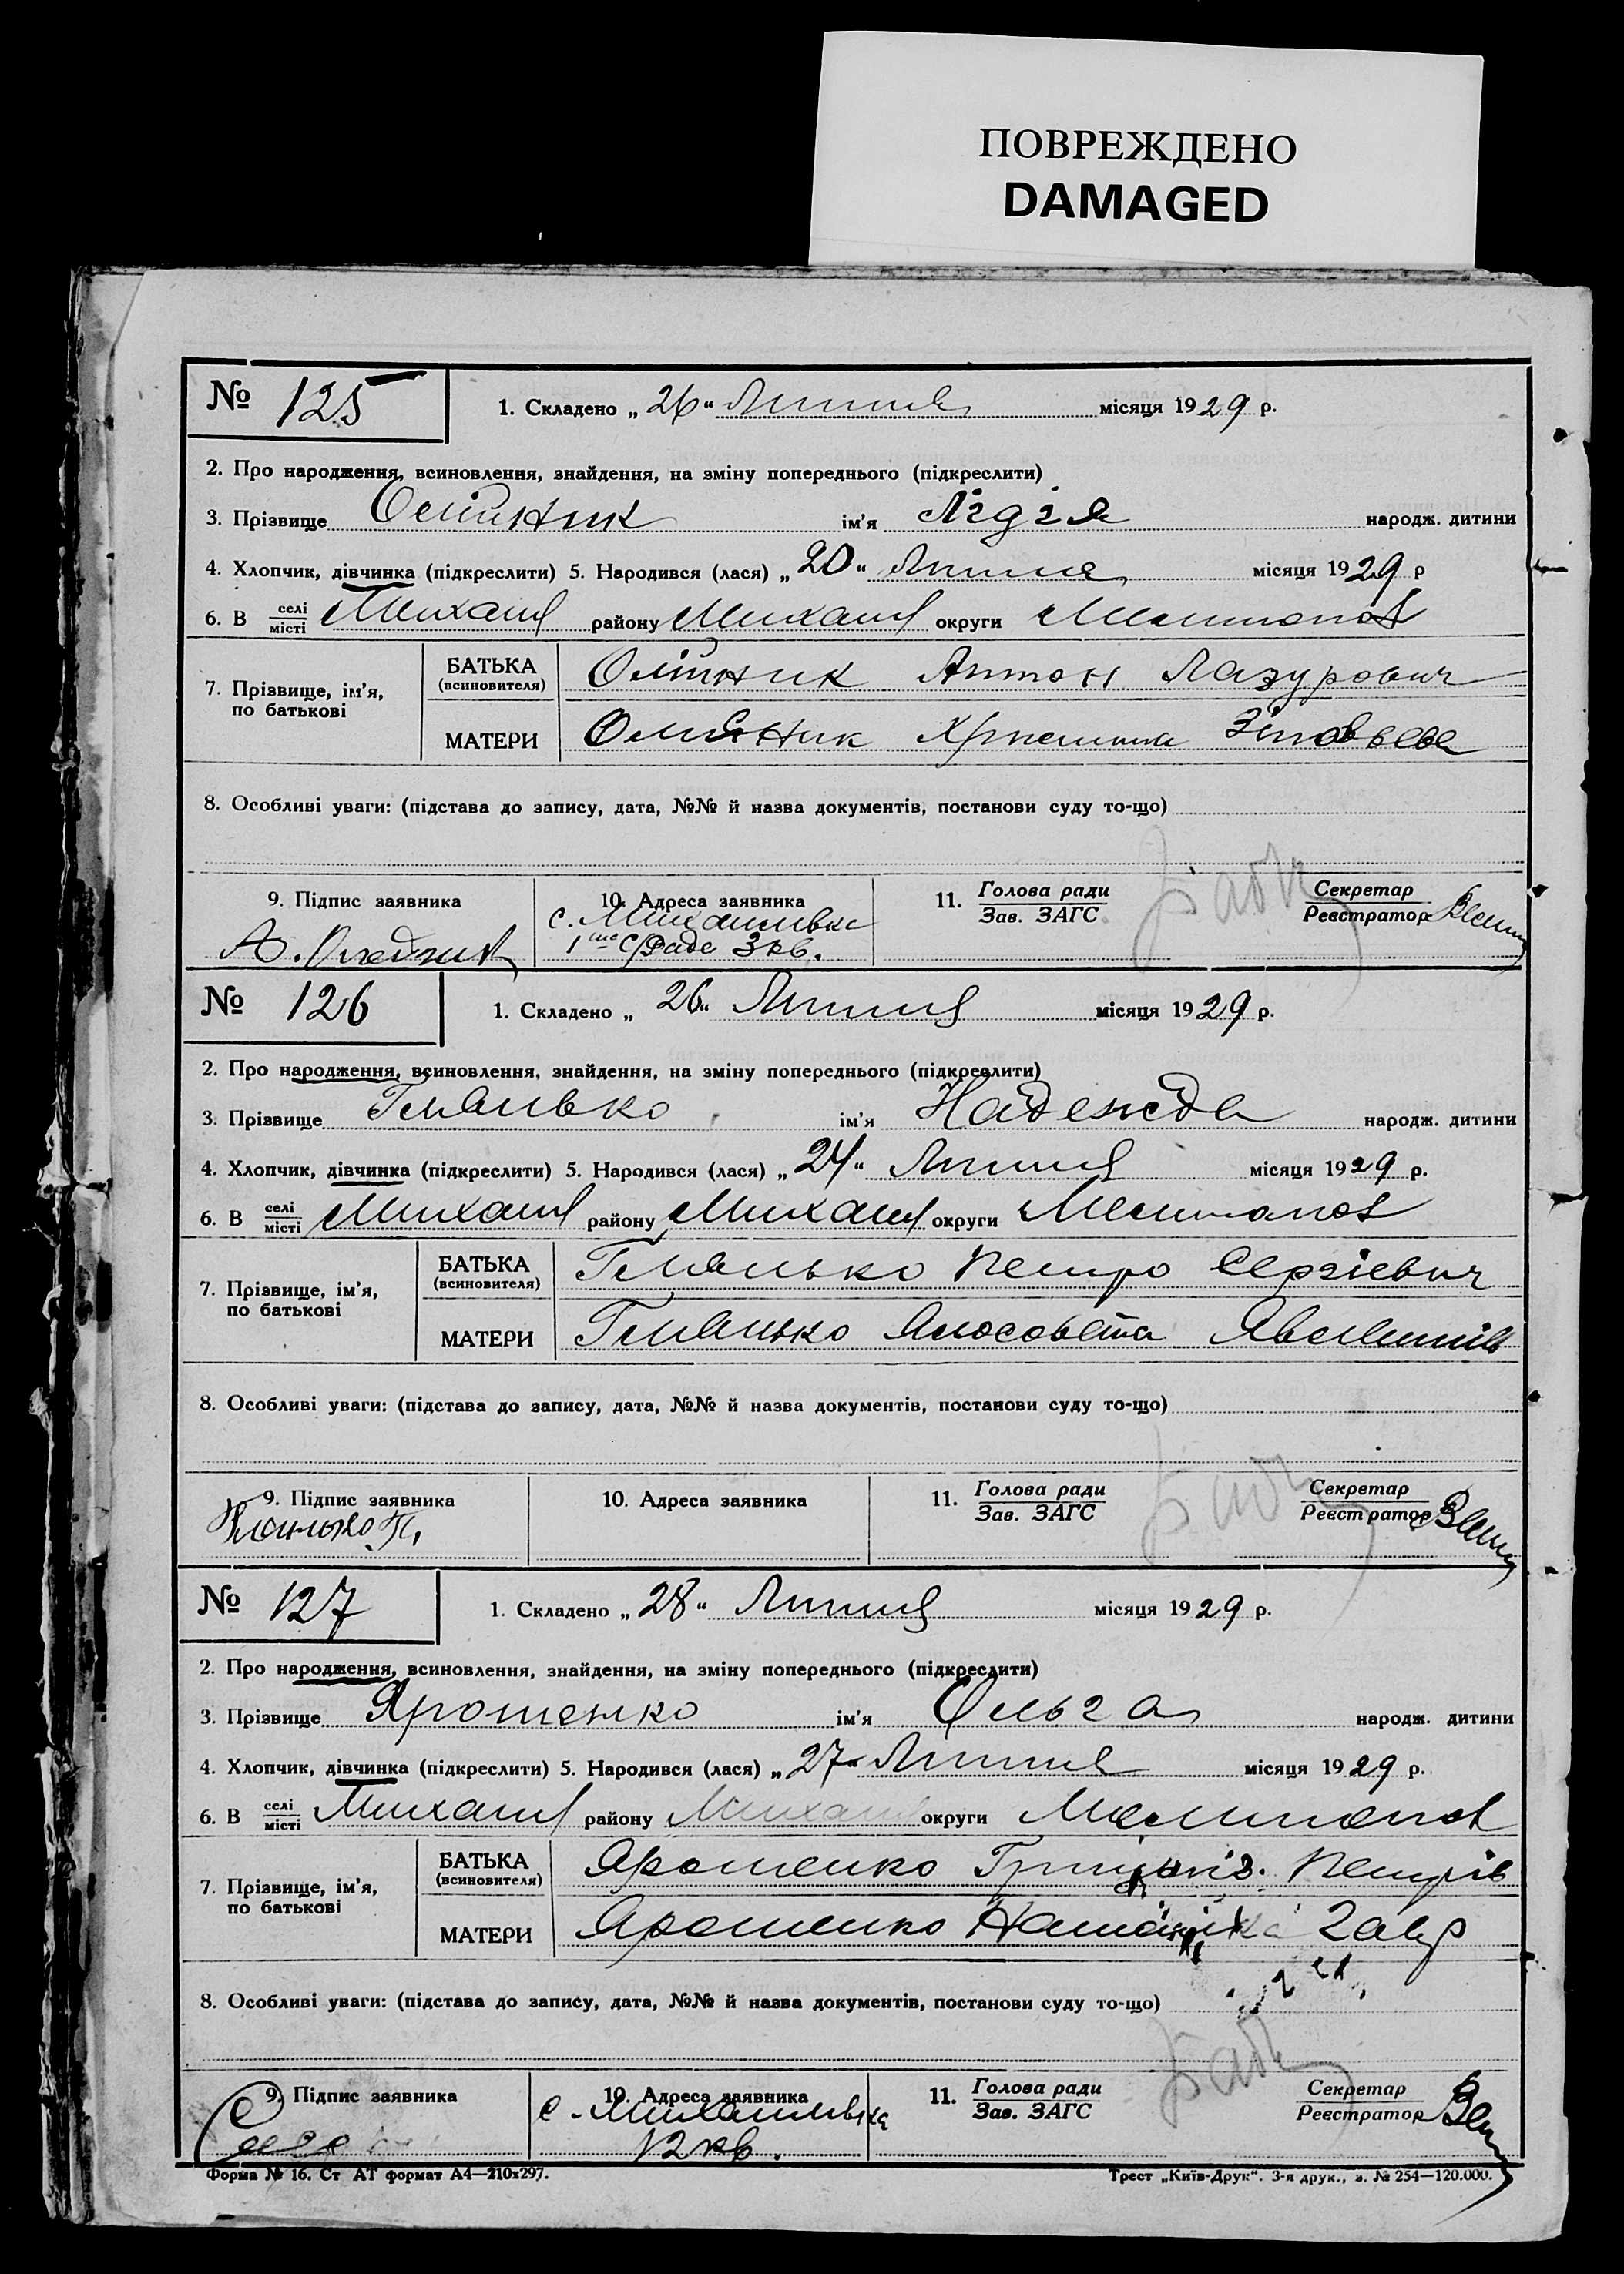 ПОВРЕЖДЕНО
DAMAGED
№ 125
1. Складено „ 26 “ Липня місяця 1929 р.
2. Про народження, всиновлення, знайдення, на зміну попереднього (підкреслити)
3. Прізвище Олійник ім’я Лідія народж. дитини
4. Хлопчик, дівчинка (підкреслити) 5. Народився (лася) „ 20 “ Липня місяця 1929 р
6. В селі місті Михайл району Михайл округи Мелитопол
7. Прізвище, ім’я, по батькові
БАТЬКА (всиновителя) Олійник Антон Лазурович
МАТЕРИ Олійник Христина Зіновьева
8. Особливі уваги: (підстава до запису, дата, №№ й назва документів, постанови суду то-що)
9. Підпис заявника
10. Адреса заявника
с. Михайлівка
3 кв.
11. Голова ради Зав. ЗАГС
Секретар Реєстратор
№ 126
1. Складено „ 26 “ Липня місяця 1929 р.
2. Про народження, всиновлення, знайдення, на зміну попереднього (підкреслити)
3. Прізвище ім’я Надежда народж. дитини
4. Хлопчик, дівчинка (підкреслити) 5. Народився (лася) „ 24 “ Липня місяця 1929 р.
6. В селі місті Михайл району Михайл округи Мелитопол
7. Прізвище, ім’я, по батькові
БАТЬКА (всиновителя) Петро Сергієвич
МАТЕРИ
8. Особливі уваги: (підстава до запису, дата, №№ й назва документів, постанови суду то-що)
9. Підпис заявника
10. Адреса заявника
11. Голова ради Зав. ЗАГС
Секретар Реєстратор
№ 127
1. Складено „ 28 “ Липня місяця 1929 р.
2. Про народження, всиновлення, знайдення, на зміну попереднього (підкреслити)
3. Прізвище Ярошенко ім’я Ольга народж. дитини
4. Хлопчик, дівчинка (підкреслити) 5. Народився (лася) „ 27 “ Липня місяця 1929 р.
6. В селі місті Михайл району Михайл округи Мелитопол
7. Прізвище, ім’я, по батькові
БАТЬКА (всиновителя) Ярошенко Петрів
МАТЕРИ Ярошенко
8. Особливі уваги: (підстава до запису, дата, №№ й назва документів, постанови суду то-що)
9. Підпис заявника
10. Адреса заявника
с. Михайлівка
12 кв.
11. Голова ради Зав. ЗАГС
Секретар Реєстратор
Форма № 16. Ст АТ формат А4—210х297.
Трест „Київ-Друк“. 3-я друк., з. № 254—120.000.